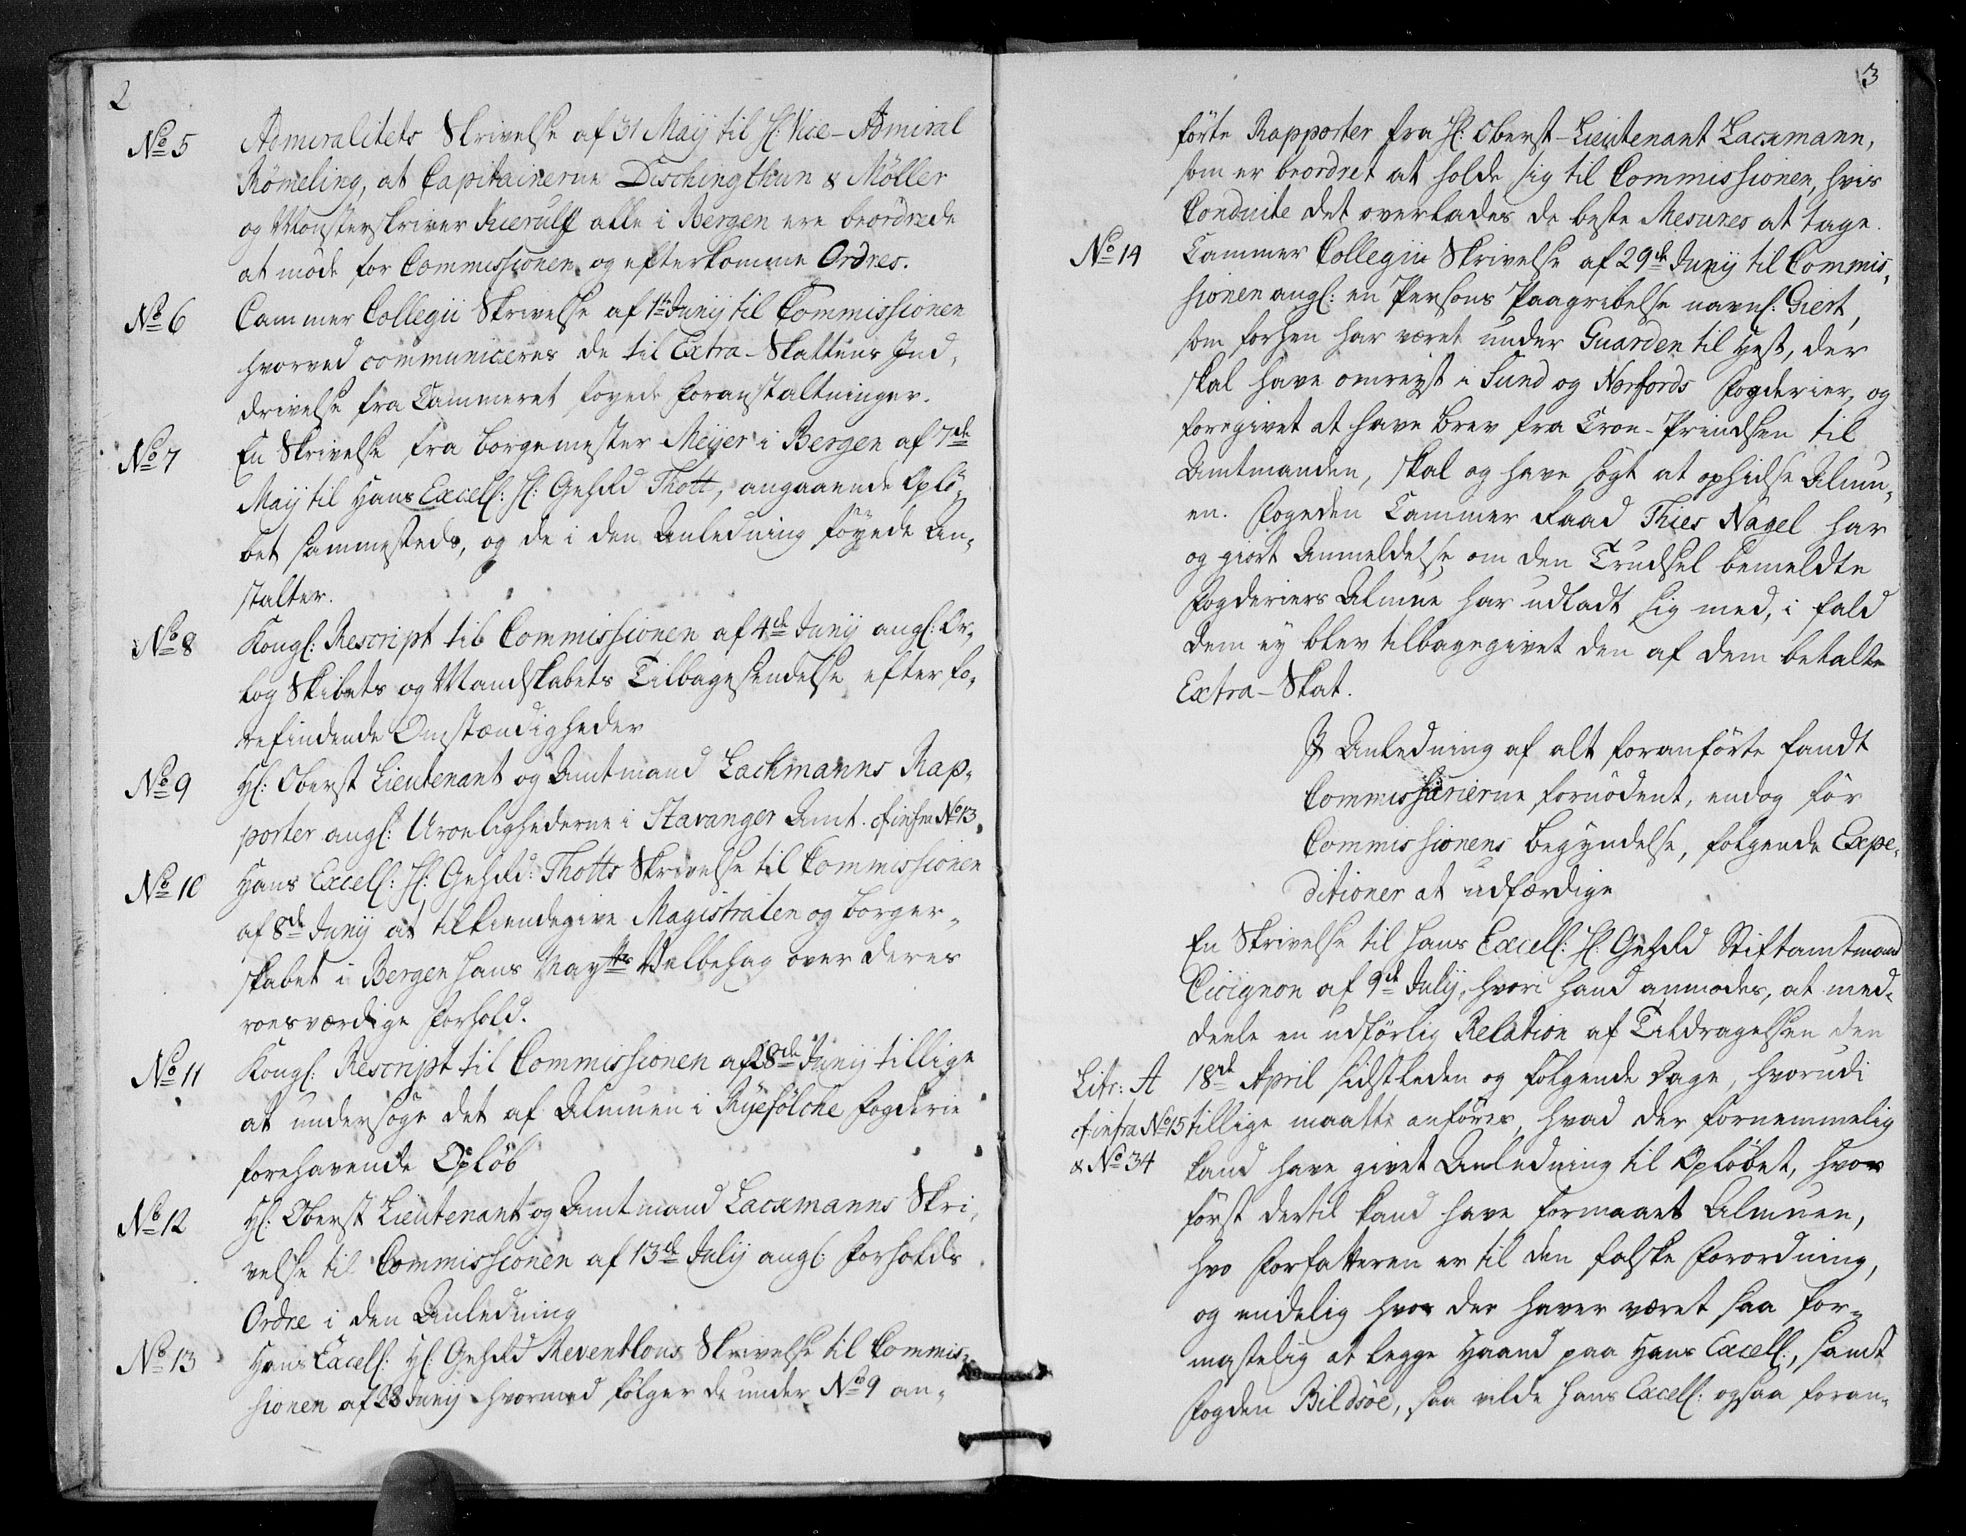 2
No 5 Admiralitets Skrivelse af 31 Maij til H: Vice-Admiral
Römeling, at Capitainerne Dischingthun & Møller
og Mønsterskriver Kierulff alle i Bergen ere beordrede
at møde for Commissionen og efterkomme Ordres.
No 6 Cammer Collegii Skrivelse af 1te Junij til Commissionen
hvorved communiceres de til Extra-Skattens Ind,
drivelse fra Cammeret föyede Foranstaltninger.
No 7 En Skrivelse fra borgemester Meijer i Bergen af 7de
Maij til Hans Excell: H: Gehrd Thott, angaaende Oplö,
bet sammesteds, og de i den Anledning föyede An,
stalter.
No 8 Kongl: Rescript til Commissionen af 4de Junij angl: Or,
log Skibets og Mandskabets Tilbagesendelse efter fo,
refindende Omstændigheder
No 9 Hl: Oberst Lieutenant og Amtmand Lachmanns Rap,
porter angl: Uroelighederne i Stavanger Amt. cf infra No 13.
No 10 Hans Excell: H: Gehrd: Thotts Skrivelse til Commissionen
af 8de Junij at tilkiendegive Magistraten og borger,
skabet i Bergen Hans Mayts Velbehag over deres
roesværdige Forhold.
No 11 Kongl: Rescript til Commissionen af 28de Junij tillige
at undersöge det af Almuen i Ryefölche Fogderie
forehavende Opløb
No 12 Hl: Oberst Lieutenant og Amtmand Lacmanns Skri,
velse til Commissionen af 13de Julij angl: Forholds
Ordre i den Anledning
No 13 Hans Excell: Hl: Gehrd Reventlous Skrivelse til Commis,
sionen af 28 Junij hvormed følger de under No 9 an,
3
førte Rapporter fra H: Oberst-Lieutenant Lacmann,
som er beordret at holde sig til Commissionen, hvis
Conduite det overlades de beste Mesures at tage.
No 14 Cammer Collegii Skrivelse af 29de Junij til Commis,
sionen angl: en Persons Paagribelse navnl: Giert,
som forhen har været under Guarden til Hest, der
skal have omreyst i Sund og Norfords Fogderier, og
foregivet at have brev fra Cron-Prindsen til
Amtmanden, skal og have sögt at ophidse Almu,
en. Fogeden Cammer Raad Thies Nagel har
og giort Anmeldelse om den Trudsel bemeldte
Fogderiers Almue har udladt sig med, i fald
dem ey blev tilbagegivet den af dem betalte
Extra-Skat.
I Anledning af alt foranförte fandt
Commissarierne fornödent, endog før
Commissionens begyndelse, følgende Expe,
ditioner at udfærdige
En Skrivelse til Hans Excell: H: Gehrd Stiftamtmand
Cicignon af 9de Julij, hvori hand anmodes, at med,
deele en udförlig Relation af Tildragelsen den
Litr: A 18de April sidstleden og følgende Dage, hvorudi
cf infra No 15 tillige maatte anföres, hvad der fornemmelig
& No 34 kand have givet Anledning til Opløbet, hvor
først dertil kand have formaaet Almuen,
hvo Forfatteren er til den falske Forordning,
og endelig hvor der haver været saa for,
mastelig at legge Haand paa Hans Excell:, samt
Fogden Bildsöe, saa vilde Hans Excell: ogsaa foran,